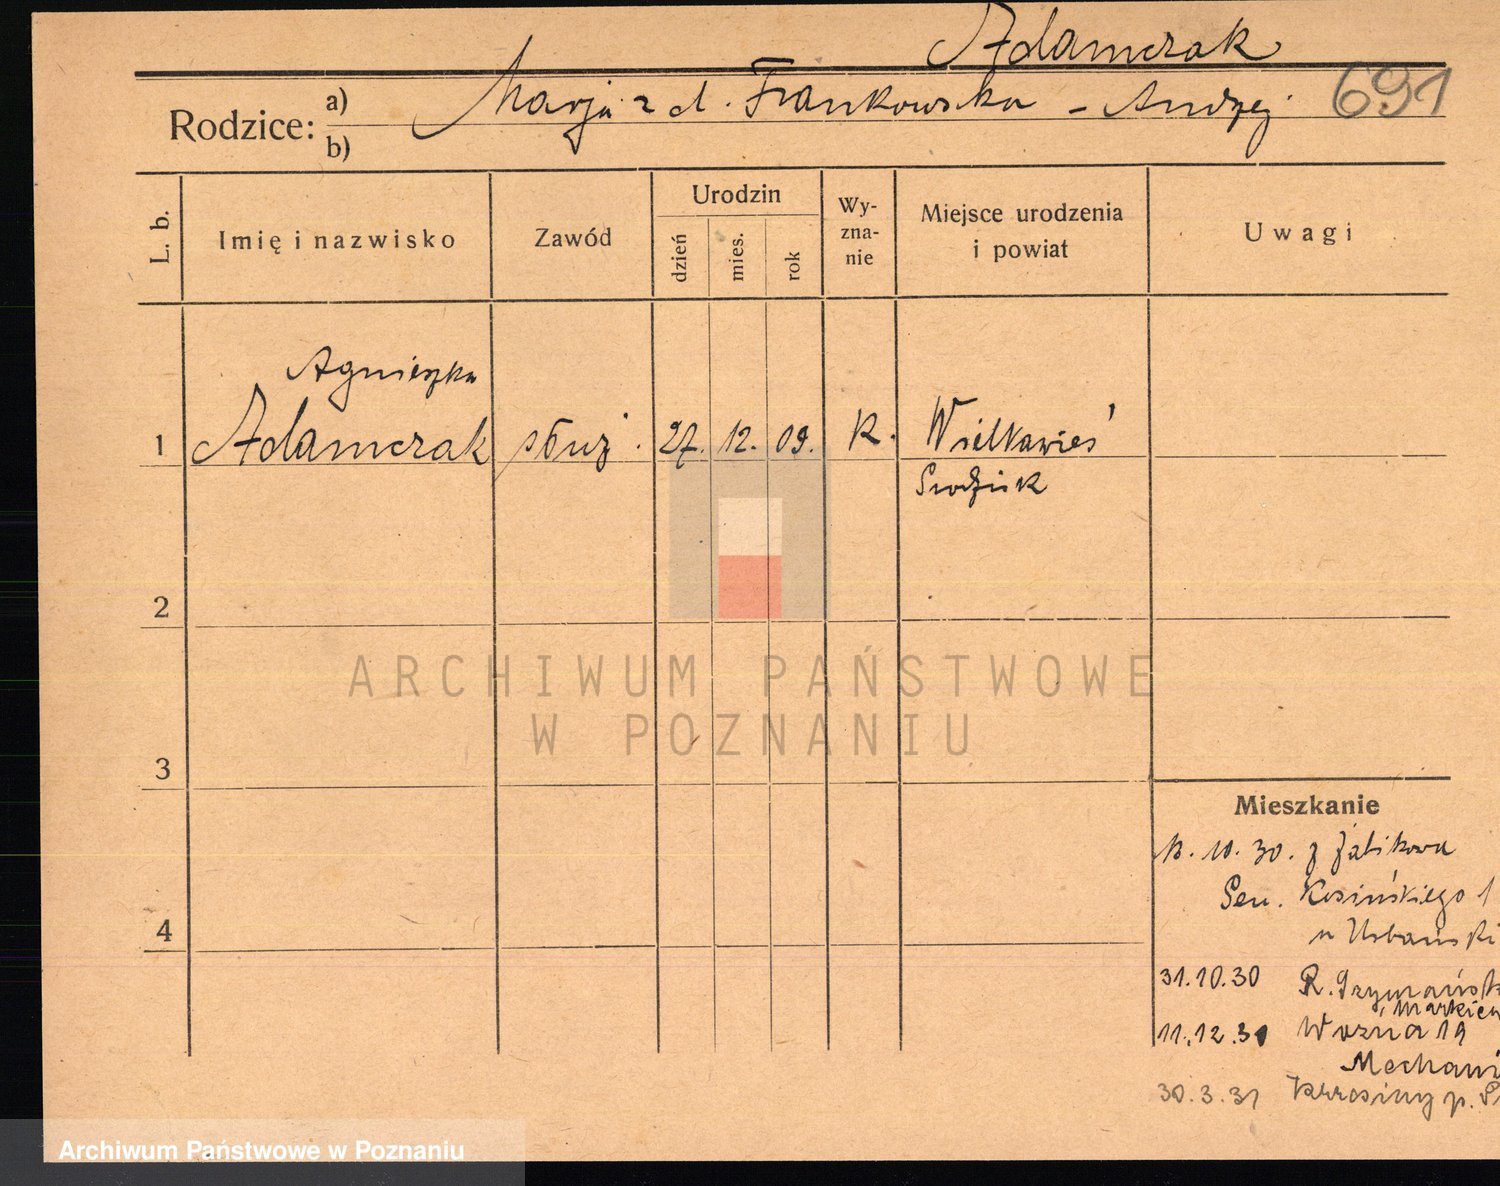 Adamczak
691
Rodzice: a) Marja z d. Frankowska - Andrzej
b)
L. b.
Imię i nazwisko
Zawód
Urodzin
dzień
mies.
rok
Wy-
zna-
nie
Miejsce urodzenia
i powiat
Uwagi
Agnieszka
1 Adamczak służ. 27. 12. 09. K. Wielkawieś
2
ARCHIWUM PAŃSTWOWE
W POZNANIU
3
Mieszkanie
10. 30. z Żabikowa
Kosińskiego 1
u Urbański
4
31.10.30 R.
Markiew
11.12.30 Woźna 19
Mechani
30.3.31 p.
Archiwum Państwowe w Poznaniu